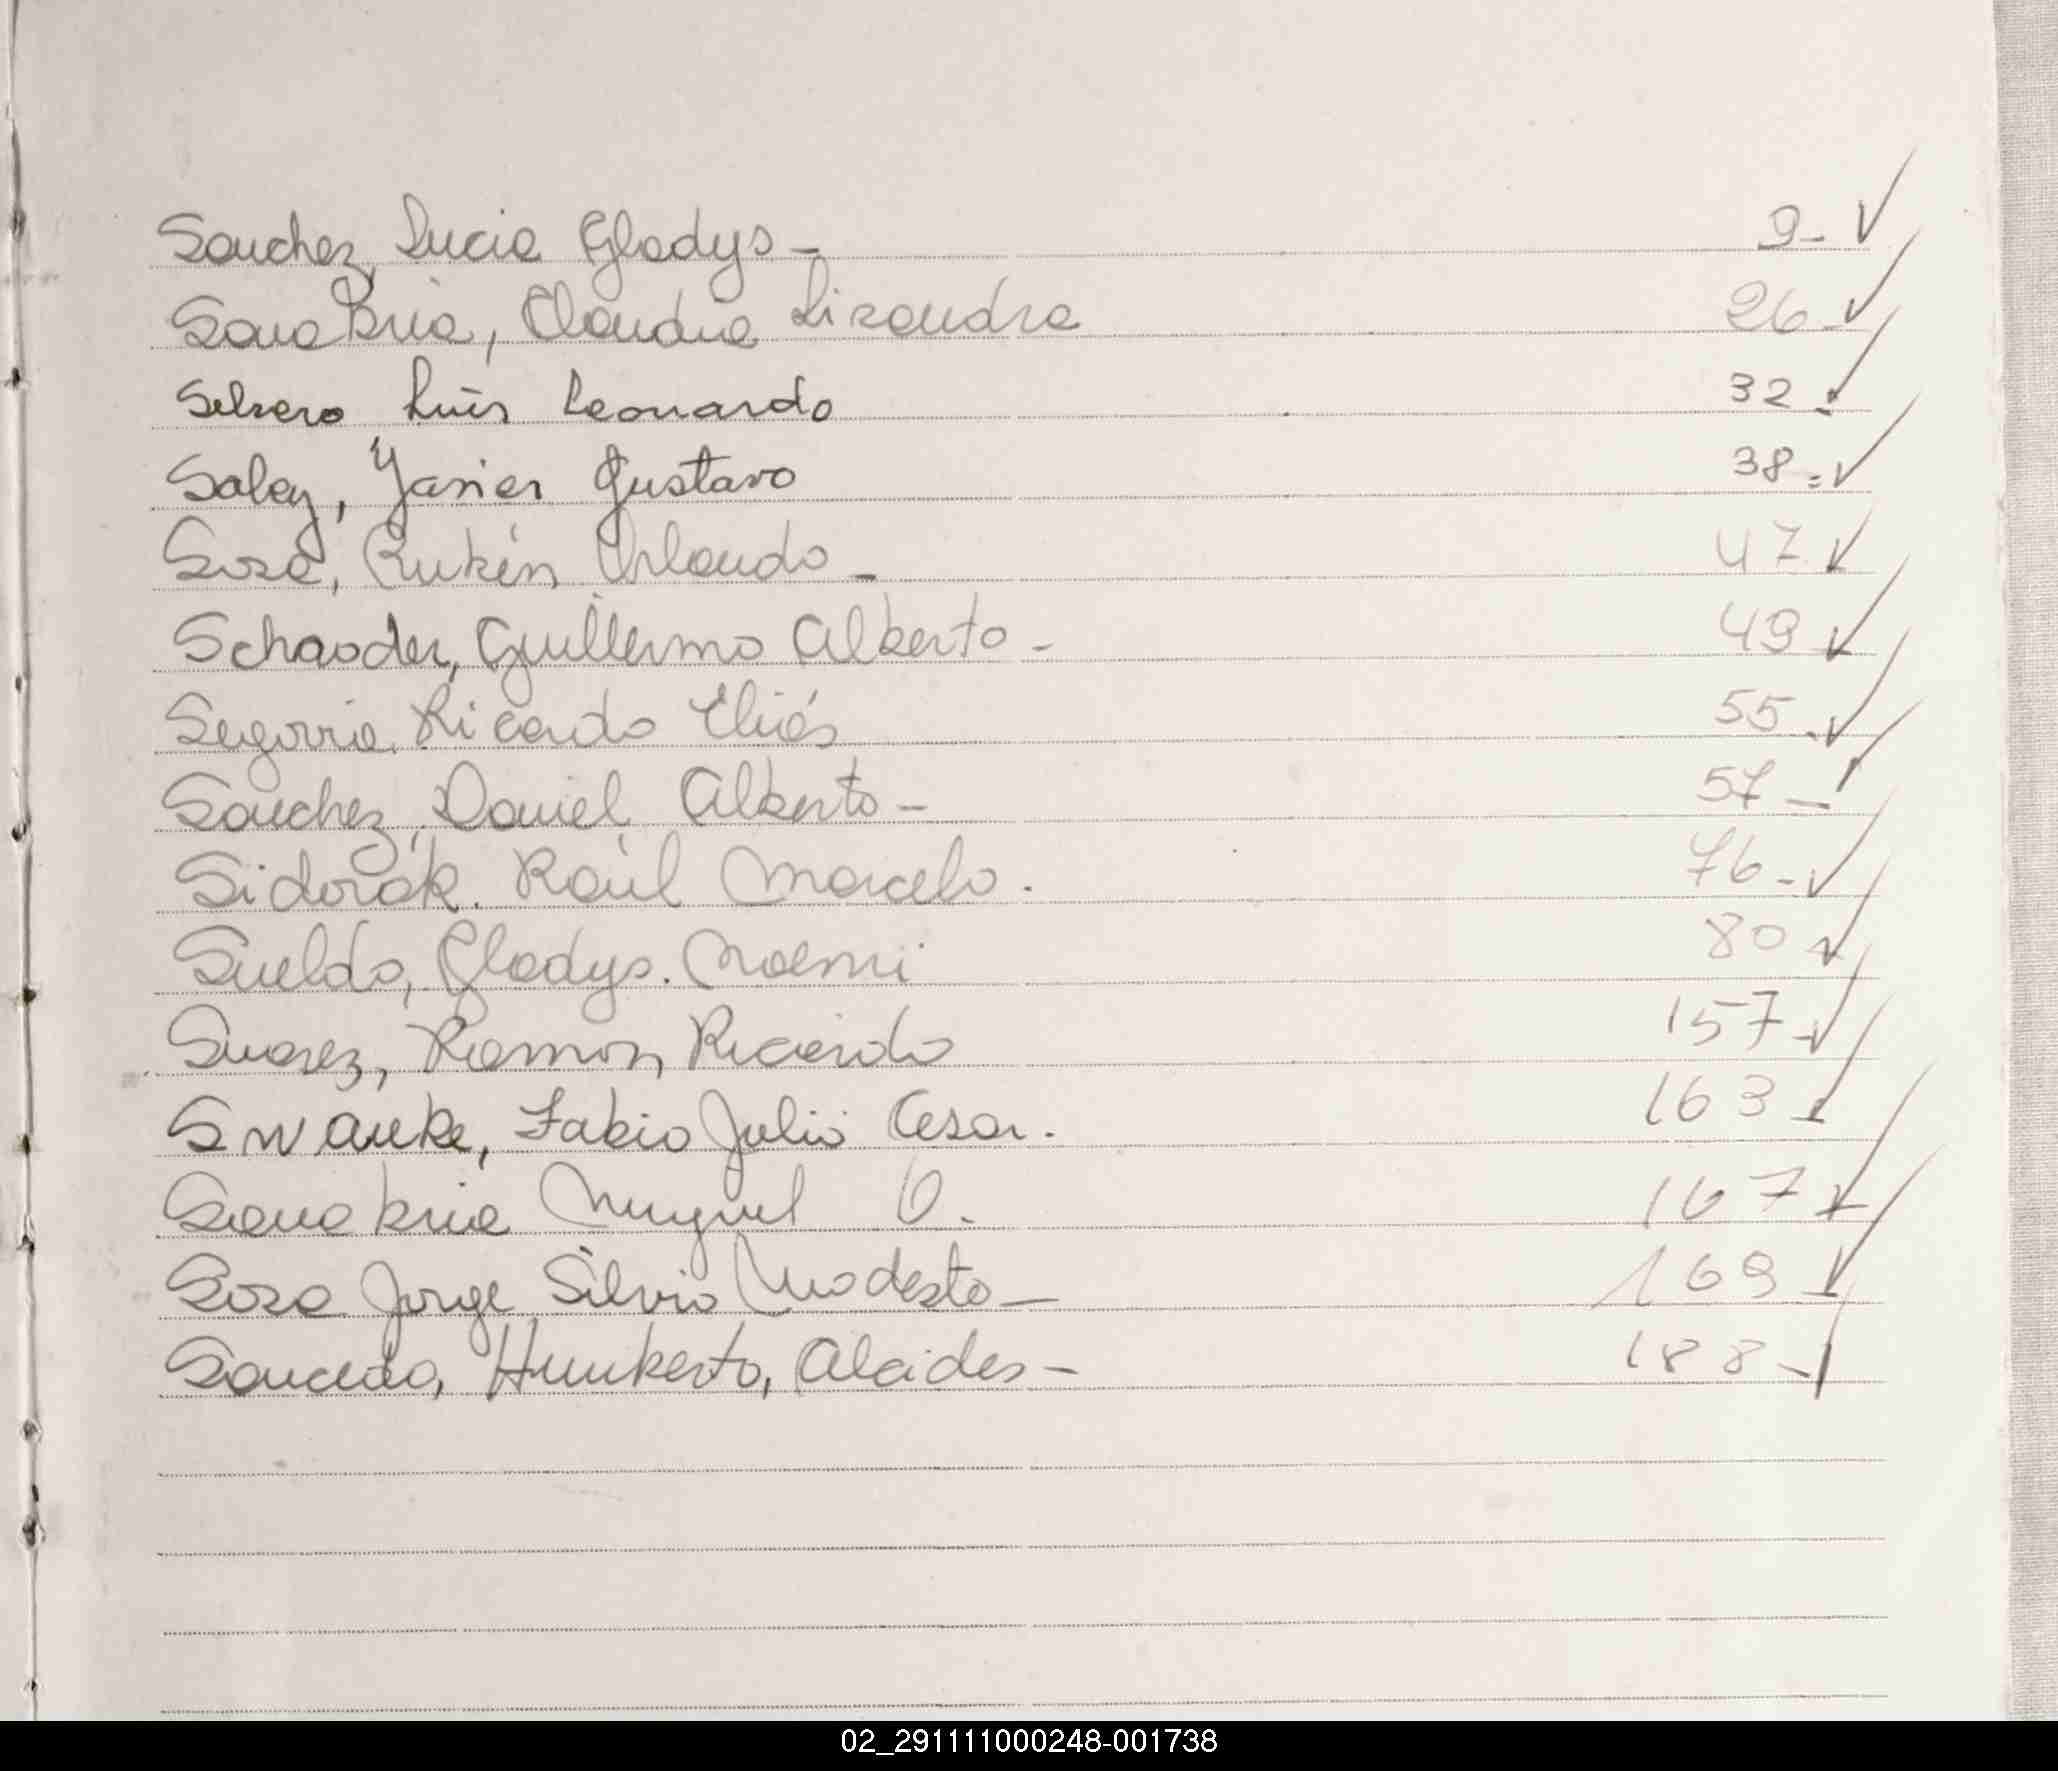 Sanchez, Lucia Gladys - 9-
Sanabria, Claudia Lizandra 26-
Selzero Luis Leonardo 32-
Saley, Javier Gustavo 38-
Sosa, Rubén Orlando - 47
Schaoder, Guillermo Alberto - 49
Segovia, Ricardo Eliás 55-
Sanchez, Daniel Alberto - 57-
Sidorak. Raúl Marcelo. 76-
Sueldo, Gladys. Noemi 80
Suarez, Ramon, Ricardo 157-
Swanke, Fabio Julio Cesar. 163-
Sanabria Miguel O. 167-
Sosa Jorge Silvio Modesto - 169-
Saucedo, Humberto, Alcides - 188-
02_291111000248-001738